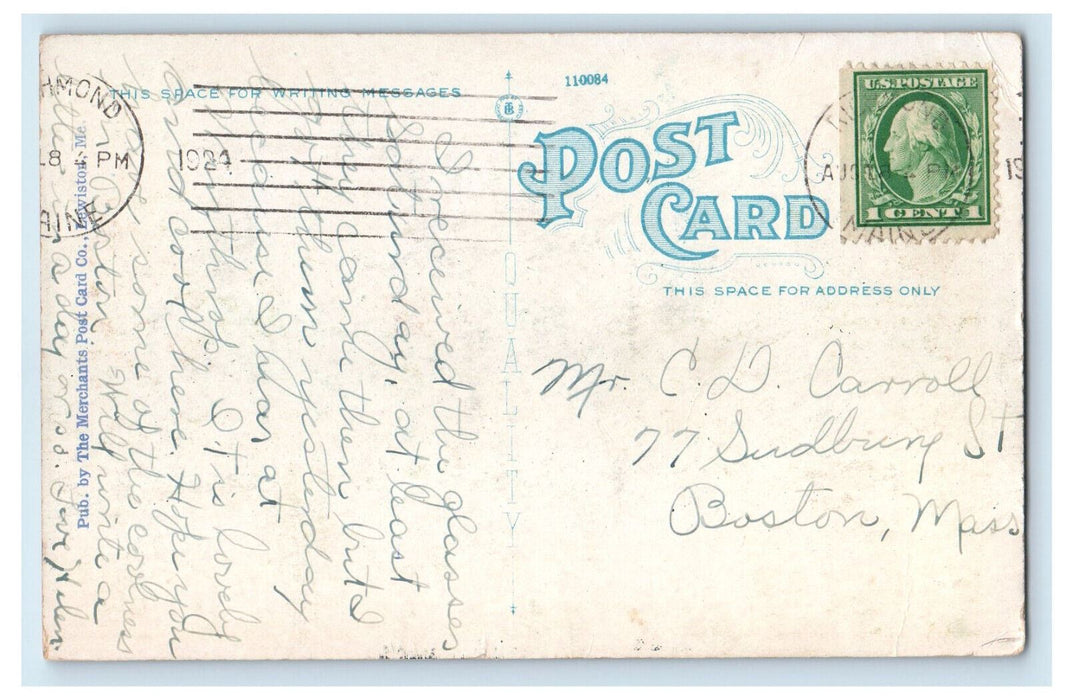 THIS SPACE FOR WRITING MESSAGES
110084
POST
CARD
THIS SPACE FOR ADDRESS ONLY
U.S. POSTAGE
1 CENT 1
HMOND
8 4 PM
1924
AINE
AUG 18
PM
MAINE
19
QUALITY
Pub. by The Merchants Post Card Co., Lewiston, Me.
Mr. C. D. Carroll
77 Sudbury St
Boston, Mass
I received the glasses
Saturday, at least
they came then but I
got them yesterday
because I was at
It is lovely
and cool there. Hope you
have some of the coolness
in Boston. Will write a
letter in a day or so. Love, Helen